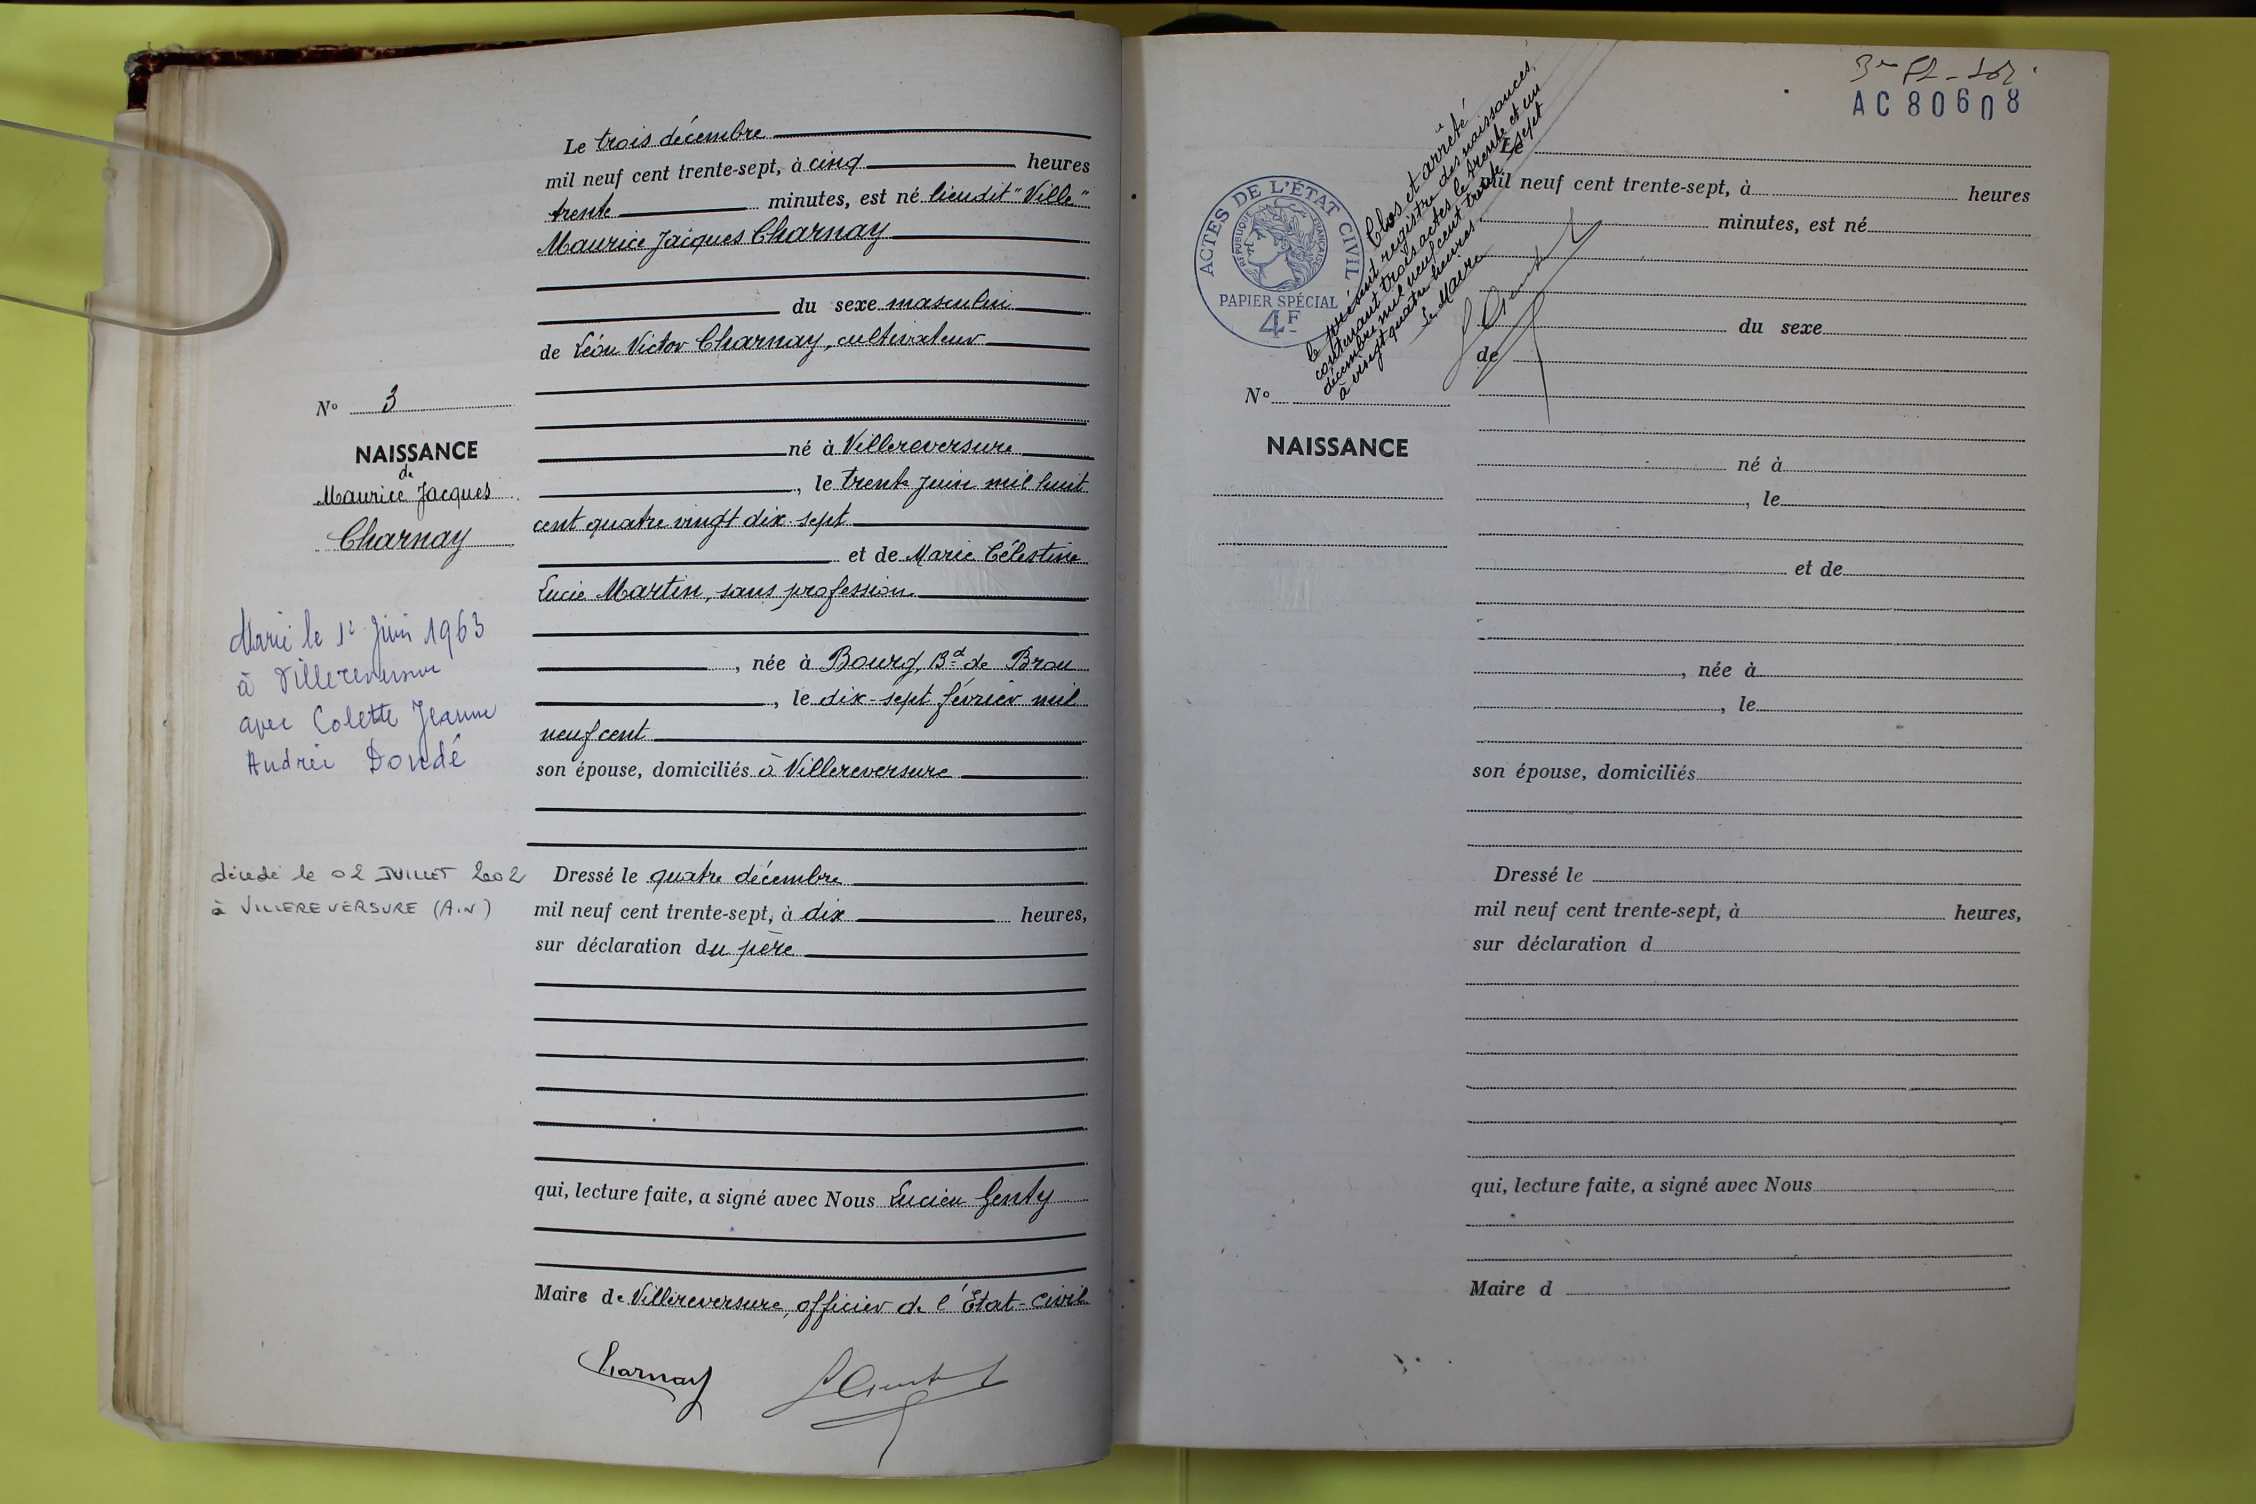 Le trois décembre
mil neuf cent trente-sept, à cinq heures
trente minutes, est né lieudit "Ville"
Maurice Jacques Charnay
du sexe masculin
de Léon Victor Charnay, cultivateur
né à Villereversure
, le trente Juin mil huit
cent quatre vingt dix-sept
et de Marie Célestine
Lucie Martin, sans profession
, née à Bourg, Bd de Brou
, le dix-sept février mil
neuf cent
son épouse, domiciliés à Villereversure
Dressé le quatre décembre
mil neuf cent trente-sept, à dix heures,
sur déclaration du père
qui, lecture faite, a signé avec Nous Lucien Genty
Maire de Villereversure, officier de l'État-civil
Charnay
No 3
NAISSANCE
de
Maurice Jacques
Charnay
Marié le 1er Juin 1963
à Villereversure
avec Colette Jeanne
Andrée Dondé
décédé le 02 JUILLET 2002
à VILLEREVERSURE (Ain)
AC 80608
ACTES DE L'ÉTAT CIVIL
RÉPUBLIQUE FRANÇAISE
PAPIER SPÉCIAL
4F
Clos et arrêté
le présent registre des naissances,
contenant trois actes le trente et un
décembre mil neuf cent trente-sept
à vingt quatre heures.
Le Maire
Le
mil neuf cent trente-sept, à heures
minutes, est né
du sexe
de
No
NAISSANCE
né à
, le
et de
, née à
, le
son épouse, domiciliés
Dressé le
mil neuf cent trente-sept, à heures,
sur déclaration d
qui, lecture faite, a signé avec Nous
Maire d